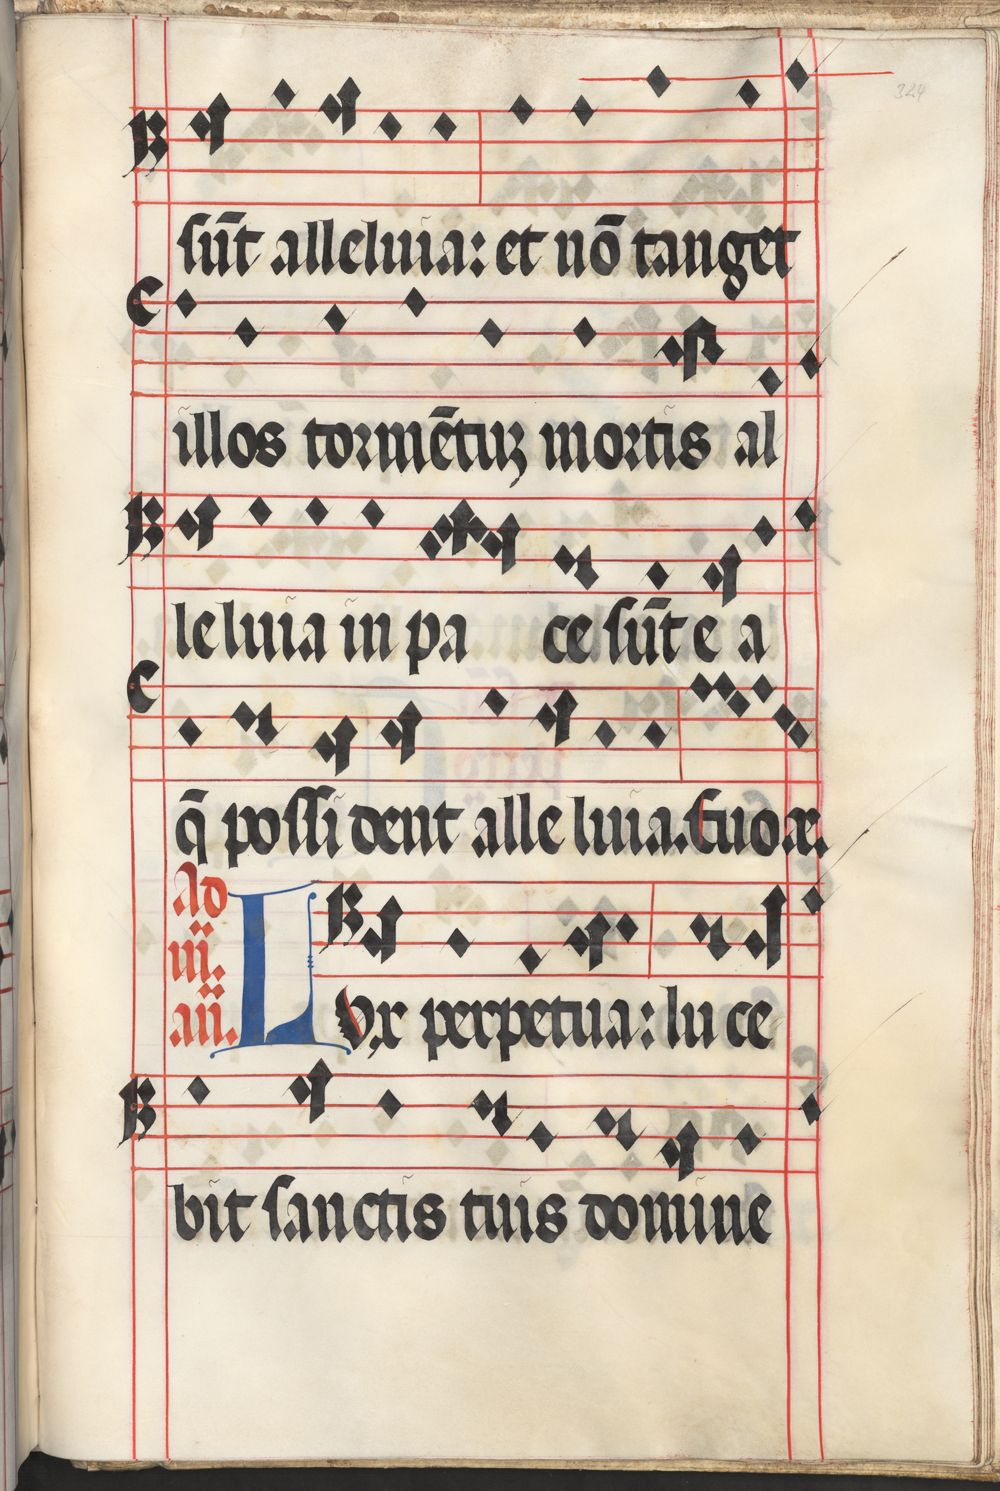 324
sūt alleluia: et nō tanget
illos tormētuꝫ mortis al
leluia in pa ce sūt e a
q̄ possi dent alle luia. Euo
Ad
iij.
añ.
LVx perpetua: lu ce
bit sanctis tuis domine